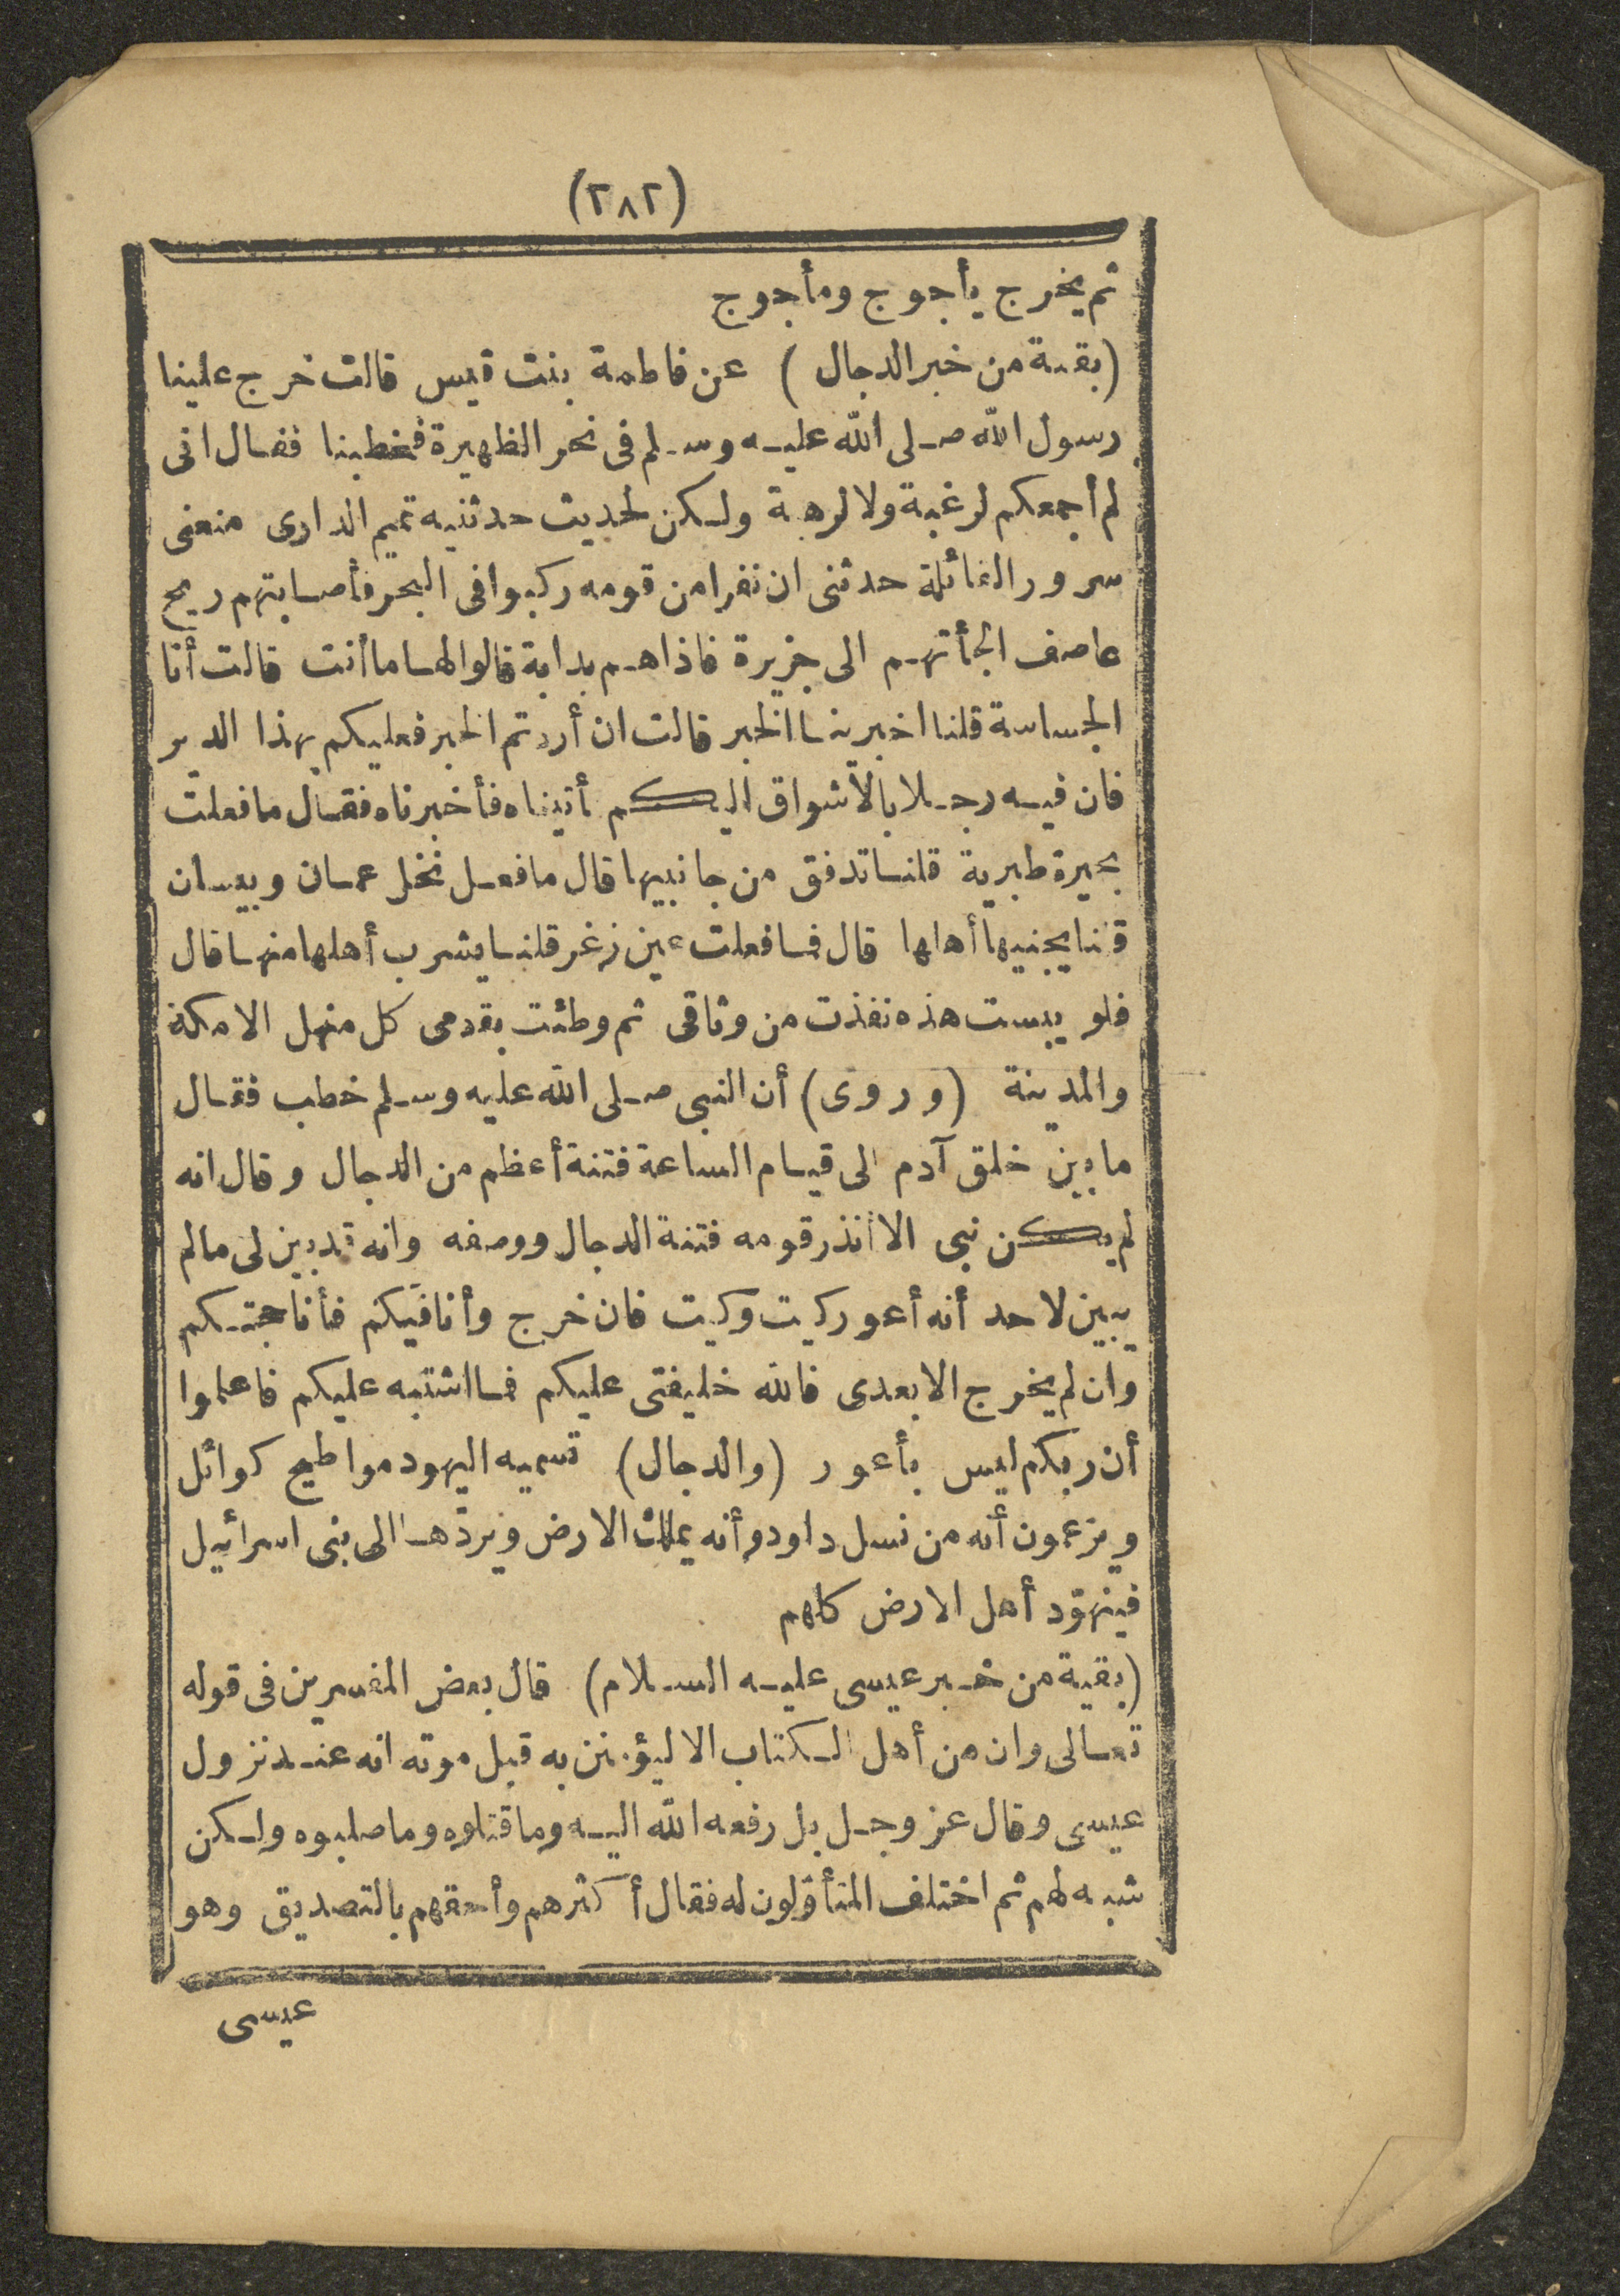 (٢٨٢)
ثم يخرج يأجوج ومأجوج
(بقية من خبر الدجال) عن فاطمة بنت قيس قالت خرج علينا
رسول الله صلى الله عليه وسلم فى نحر الظهيرة فخطبنا فقال انى
لم أجمعكم لرغبة ولا لرهبة ولكن لحديث حدثنيه تميم الدارى منعنى
سرور القائلة حدثنى ان نفرا من قومه ركبوا فى البحر فأصابتهم ريح
عاصف الجأتهم الى جزيرة فاذا هم بدابة قالوا لها ما أنت قالت أنا
الجساسة قلنا اخبرينا الخبر قالت ان أردتم الخبر فعليكم بهذا الدير
فان فيه رجلا بالاشواق اليكم أتيناه فأخبرناه فقال ما فعلت
بحيرة طبرية قلنا تدفق من جانبيها قال ما فعل نخل عمان وبيسان
قلنا يجنيها أهلها قال فما فعلت عين زغر قلنا يشرب أهلها منها قال
فلو يبست هذه نفذت من وثاقى ثم وطئت بقدمى كل منهل الا مكة
والمدينة (وروى) أن النبى صلى الله عليه وسلم خطب فقال
ما بين خلق آدم الى قيام الساعة فتنة أعظم من الدجال وقال انه
لم يكن نبى الا أنذر قومه فتنة الدجال ووصفه وانه قد بين لى ما لم
يبين لاحد أنه أعور كيت وكيت فان خرج وأنا فيكم فأنا حجتكم
وان لم يخرج الا بعدى فالله خليفتى عليكم فما اشتبه عليكم فاعلموا
أن ربكم ليس بأعور (والدجال) تسميه اليهود مواطيح كوائل
ويزعمون أنه من نسل داود وأنه يملك الارض ويردّها الى بنى اسرائيل
فيتهوّد أهل الارض كلهم
(بقية من خبر عيسى عليه السلام) قال بعض المفسرين فى قوله
تعالى وان من أهل الكتاب الا ليؤمنن به قبل موته انه عند نزول
عيسى وقال عز وجل بل رفعه الله اليه وما قتلوه وما صلبوه ولكن
شبه لهم ثم اختلف المتأوّلون له فقال أكثرهم وأحقهم بالتصديق وهو
عيسى